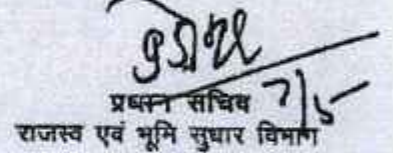 प्रधान सचिव 7/5
राजस्व एवं भूमि सुधार विभाग